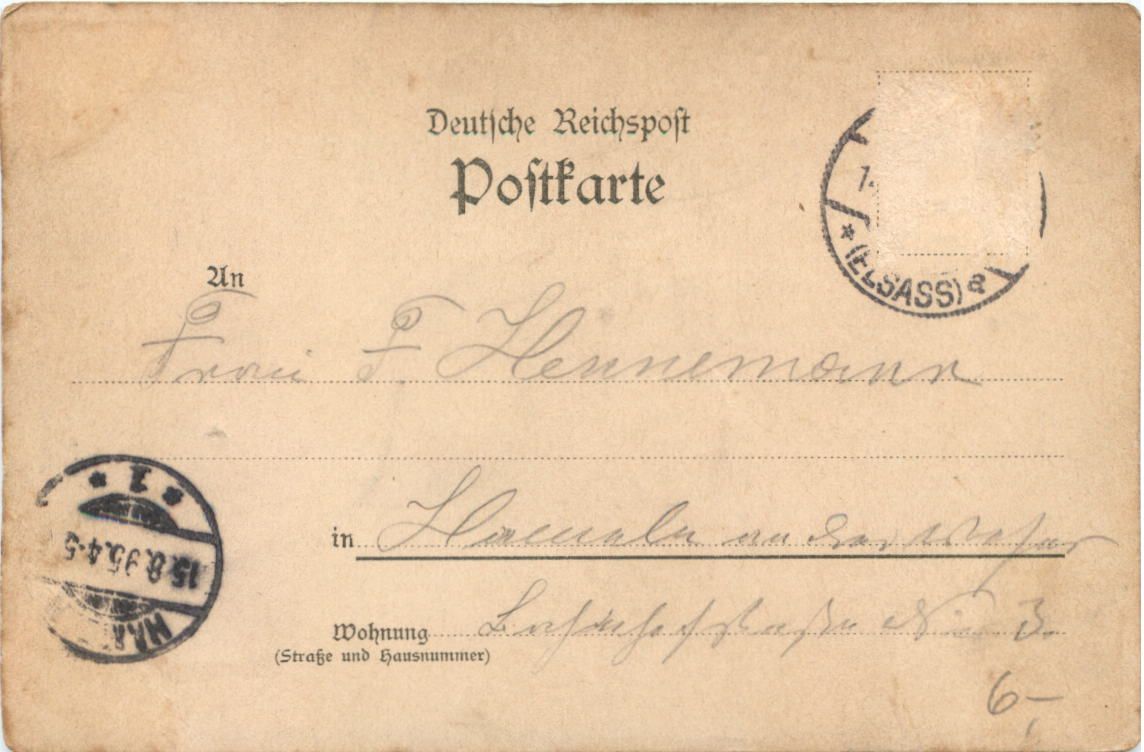 Deutsche Reichspost
Postkarte
(ELSASS)
An
Frau F. Hennemann
1
15.8.95.4-5
HAM
in Hameln an der Weser
Wohnung Bahnhofstraße No 3.
(Straße und Hausnummer)
6,-